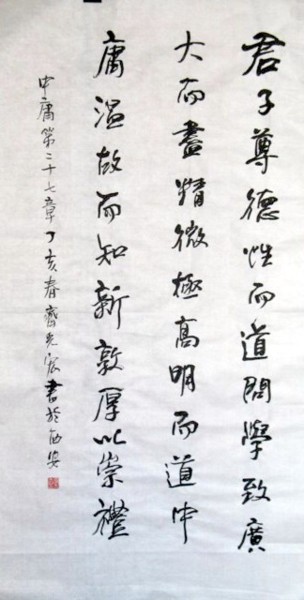 君子尊德性而道問學致廣
大而盡精微極高明而道中
庸溫故而知新敦厚以崇禮
中庸第二十七章丁亥春齊光宏書於西安